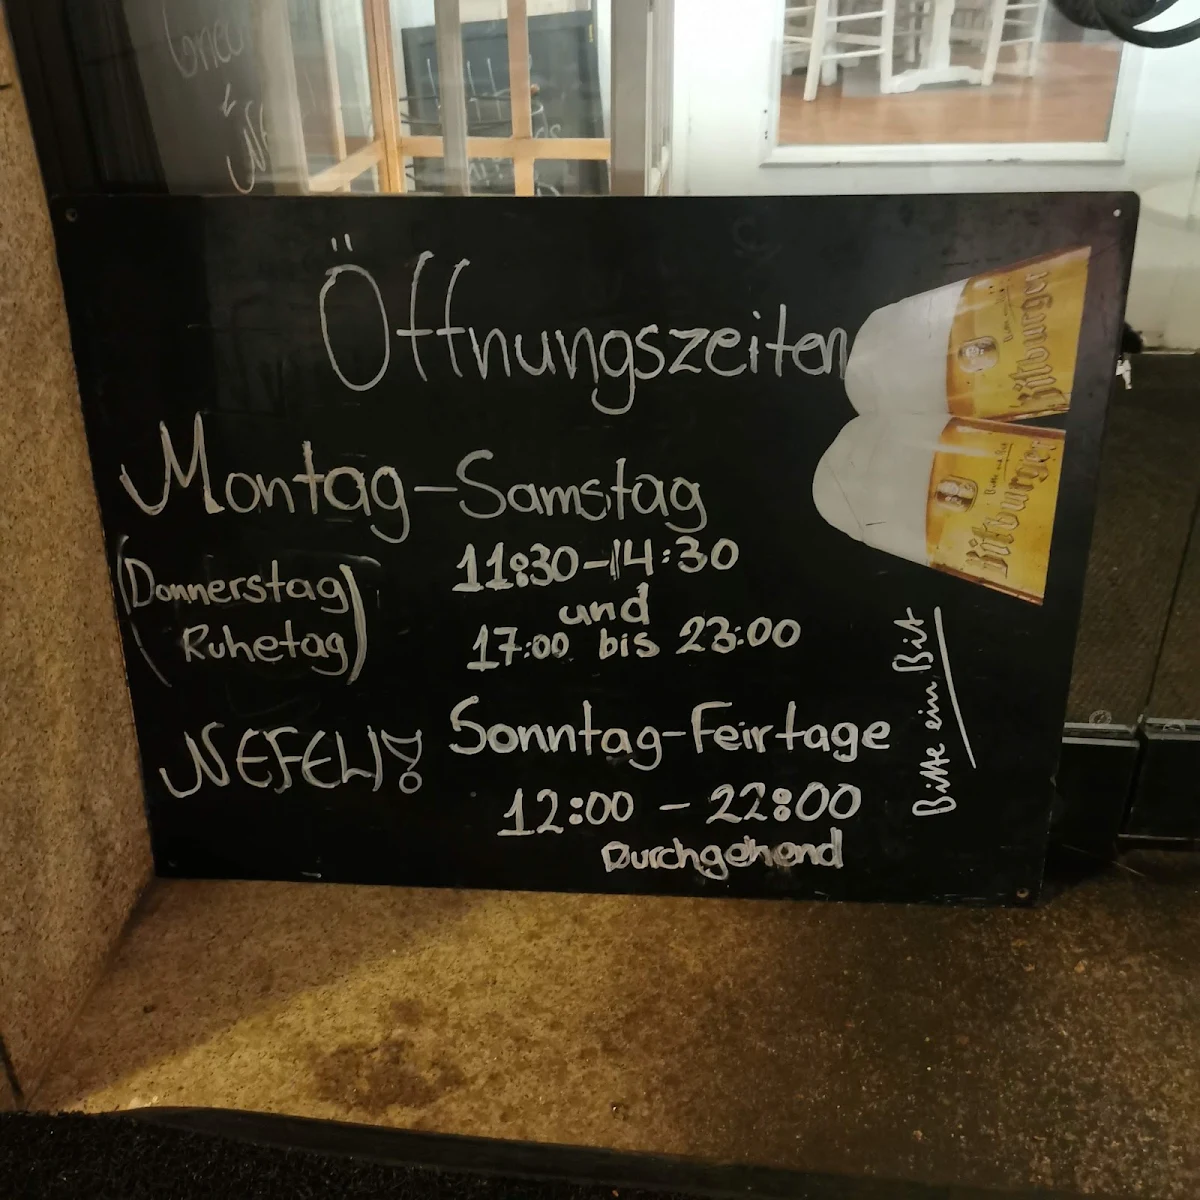 Öffnungszeiten
Montag-Samstag
(Donnerstag
Ruhetag)
11:30-14:30
und
17:00 bis 23:00
NEFELI!
Sonntag-Feirtage
12:00 - 22:00
Durchgehend
Bitte ein Bit
Bitburger
Bitburger